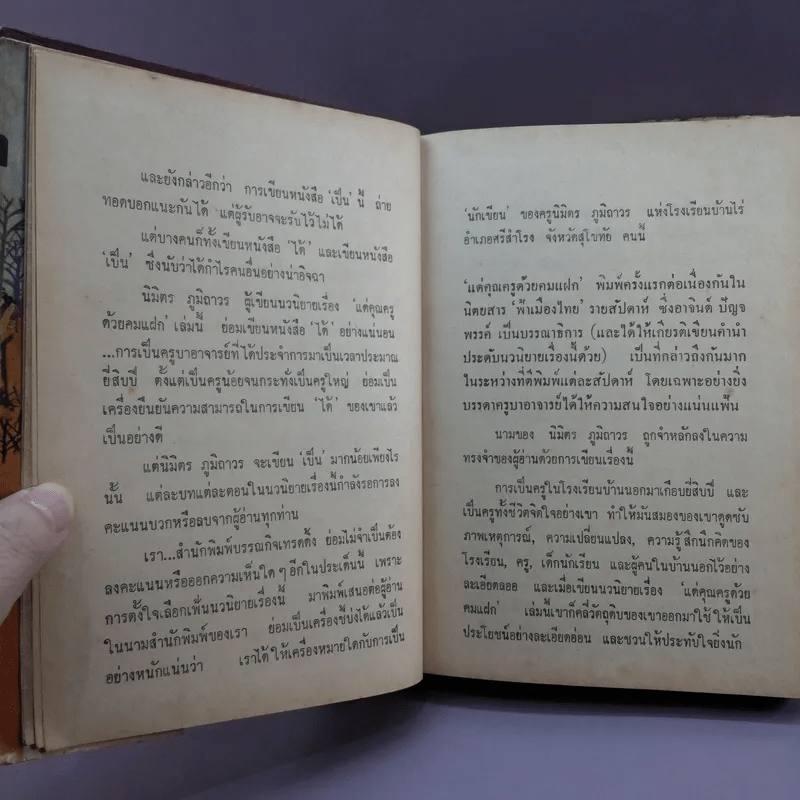 และยังกล่าวอีกว่า การเขียนหนังสือ 'เป็น' นี้ ถ่าย
ทอดบอกแนะกันได้ แต่ผู้รับอาจจะรับไว้ไม่ได้
แต่บางคนก็ทั้งเขียนหนังสือ 'ได้' และเขียนหนังสือ
'เป็น' ซึ่งนับว่าได้กำไรคนอื่นอย่างน่าอิจฉา
นิมิตร ภูมิถาวร ผู้เขียนนวนิยายเรื่อง 'แด่คุณครู
ด้วยคมแฝก' เล่มนี้ ย่อมเขียนหนังสือ 'ได้' อย่างแน่นอน
...การเป็นครูบาอาจารย์ที่ได้ประจำการมาเป็นเวลาประมาณ
ยี่สิบปี ตั้งแต่เป็นครูน้อยจนกระทั่งเป็นครูใหญ่ ย่อมเป็น
เครื่องยืนยันความสามารถในการเขียน 'ได้' ของเขาแล้ว
เป็นอย่างดี
แต่นิมิตร ภูมิถาวร จะเขียน 'เป็น' มากน้อยเพียงไร
นั้น แต่ละบทแต่ละตอนในนวนิยายเรื่องนี้กำลังรอการลง
คะแนนบวกหรือลบจากผู้อ่านทุกท่าน
เรา...สำนักพิมพ์บรรณกิจเทรดดิ้ง ย่อมไม่จำเป็นต้อง
ลงคะแนนหรือออกความเห็นใด ๆ อีกในประเด็นนี้ เพราะ
การตั้งใจเลือกเฟ้นนวนิยายเรื่องนี้ มาพิมพ์เสนอต่อผู้อ่าน
ในนามสำนักพิมพ์ของเรา ย่อมเป็นเครื่องชี้บ่งได้แล้วเป็น
อย่างหนักแน่นว่า เราได้ให้เครื่องหมายใดกับการเป็น
'นักเขียน' ของครูนิมิตร ภูมิถาวร แห่งโรงเรียนบ้านไร่
อำเภอศรีสำโรง จังหวัดสุโขทัย คนนี้
'แด่คุณครูด้วยคมแฝก' พิมพ์ครั้งแรกต่อเนื่องกันใน
นิตยสาร 'ฟ้าเมืองไทย' รายสัปดาห์ ซึ่งอาจินต์ ปัญจ
พรรค์ เป็นบรรณาธิการ (และได้ให้เกียรติเขียนคำนำ
ประดับนวนิยายเรื่องนี้ด้วย) เป็นที่กล่าวถึงกันมาก
ในระหว่างที่ตีพิมพ์แต่ละสัปดาห์ โดยเฉพาะอย่างยิ่ง
บรรดาครูบาอาจารย์ได้ให้ความสนใจอย่างแน่นแฟ้น
นามของ นิมิตร ภูมิถาวร ถูกจำหลักลงในความ
ทรงจำของผู้อ่านด้วยการเขียนเรื่องนี้
การเป็นครูในโรงเรียนบ้านนอกมาเกือบยี่สิบปี และ
เป็นครูทั้งชีวิตจิตใจอย่างเขา ทำให้มันสมองของเขาดูดซับ
ภาพเหตุการณ์, ความเปลี่ยนแปลง, ความรู้สึกนึกคิดของ
โรงเรียน, ครู, เด็กนักเรียน และผู้คนในบ้านนอกไว้อย่าง
ละเอียดลออ และเมื่อเขียนนวนิยายเรื่อง 'แด่คุณครูด้วย
คมแฝก' เล่มนี้เขาก็คลี่วัตถุดิบของเขาออกมาใช้ให้เป็น
ประโยชน์อย่างละเอียดอ่อน และชวนให้ประทับใจยิ่งนัก